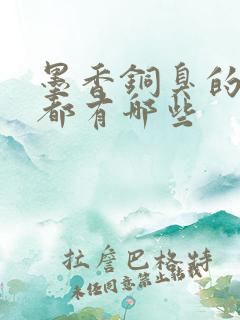 墨香銅臭的
都有哪些
拉詹巴格特
未经同意禁止转载